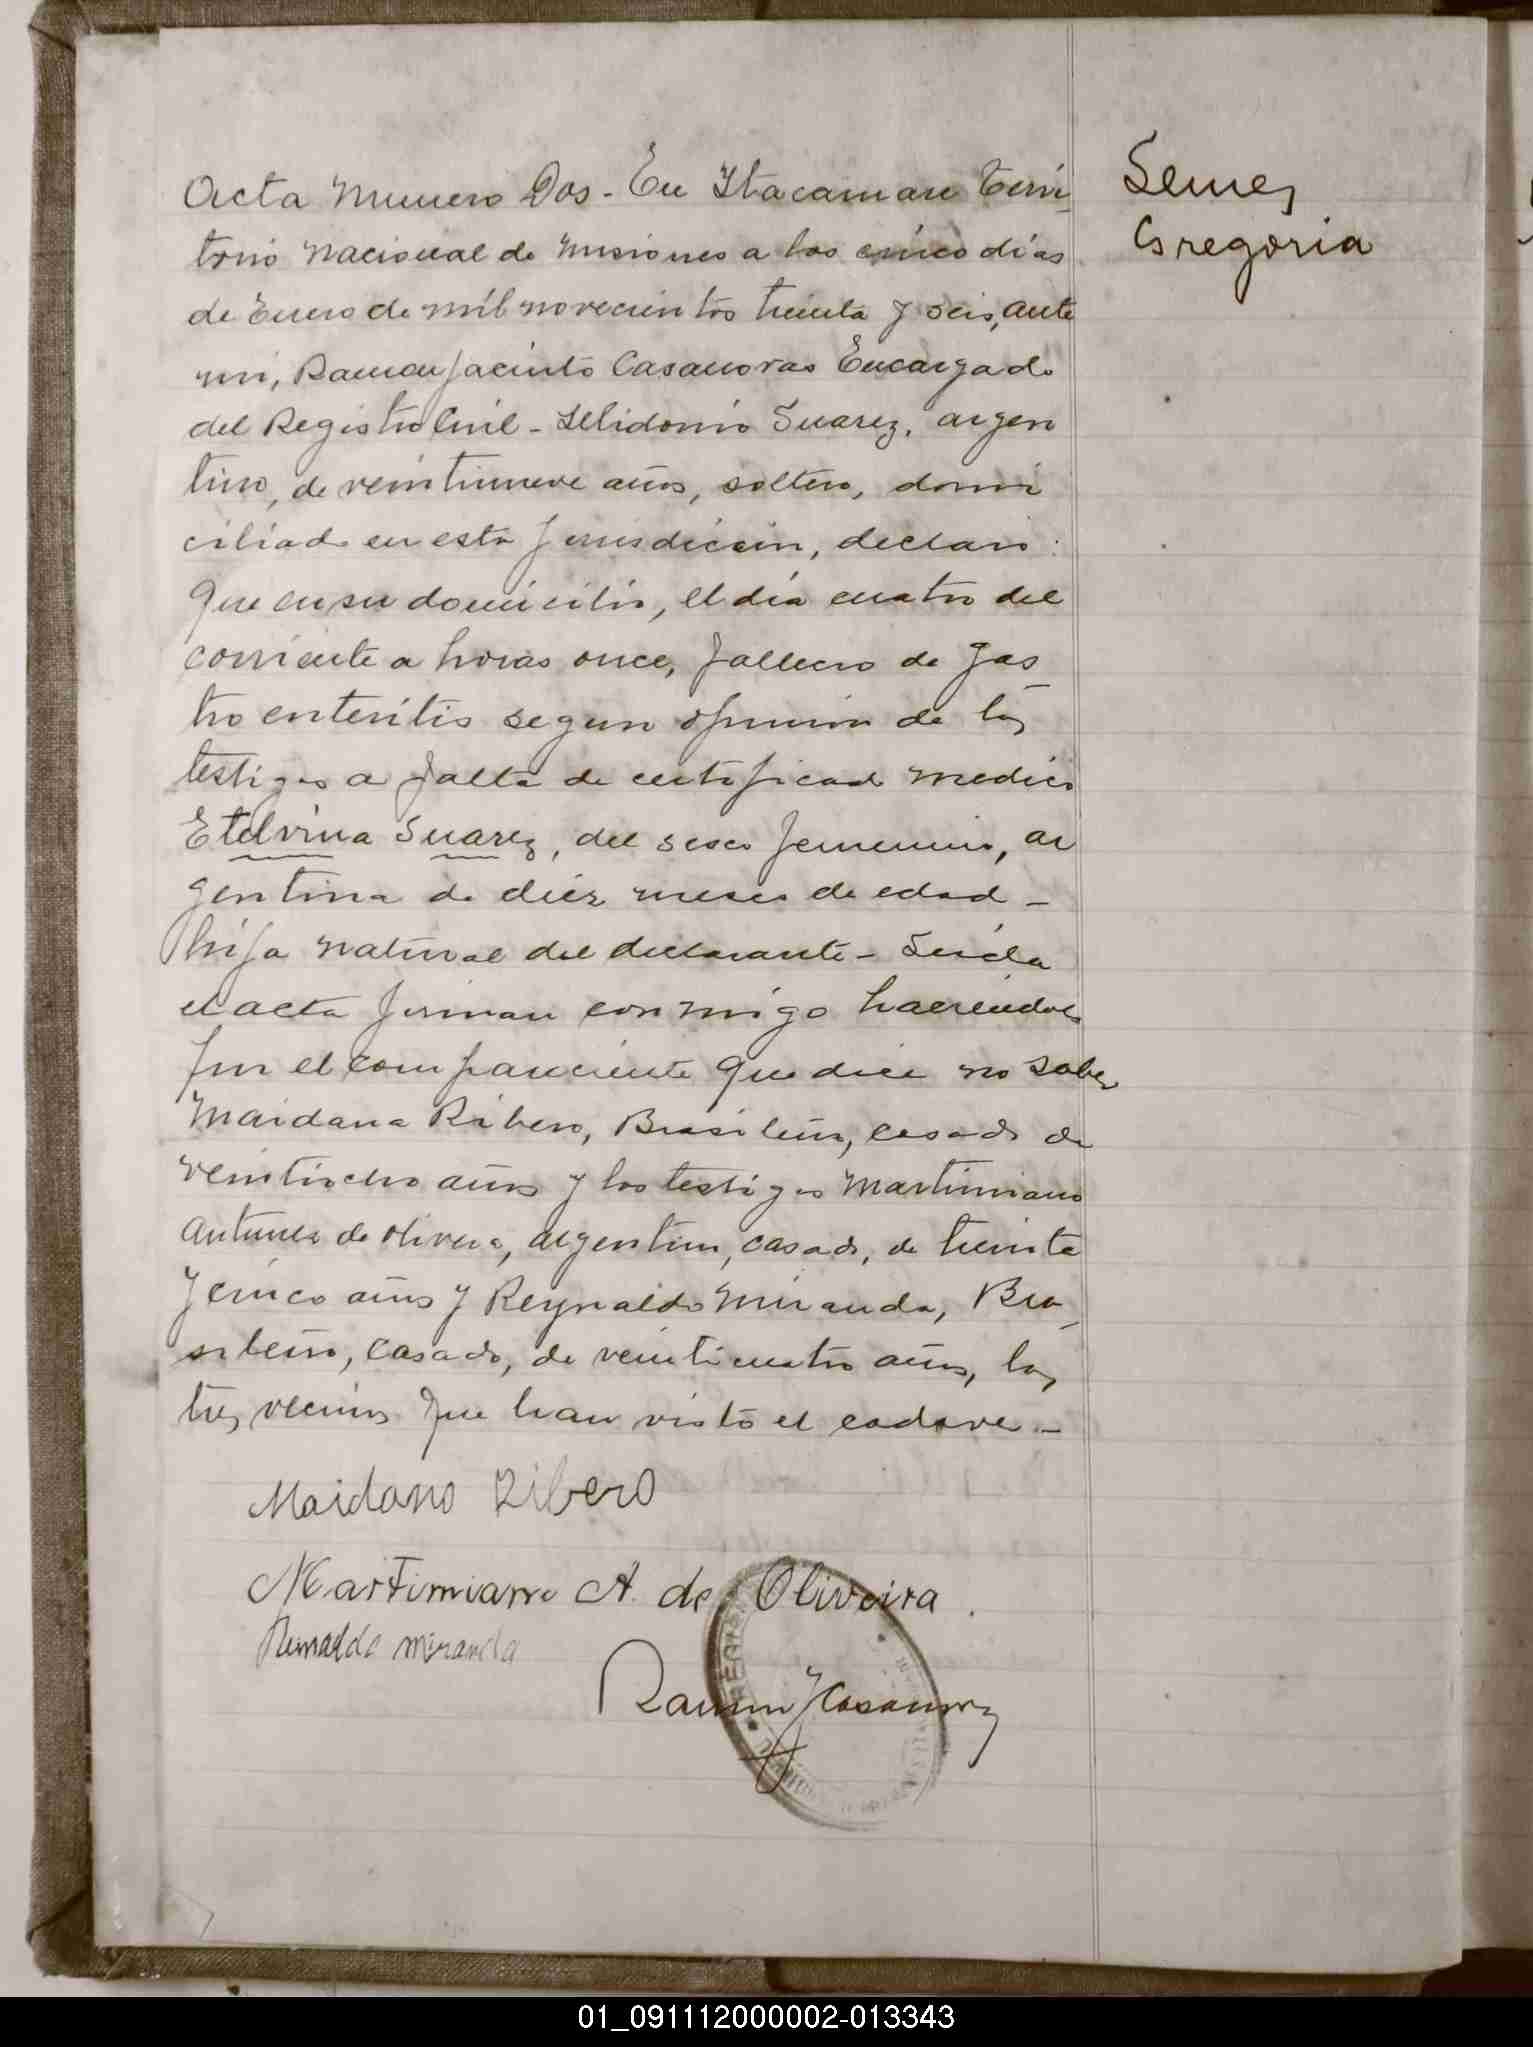 Acta Numero Dos - En Itacaruare Terri-
torio Nacional de Misiones a los cinco dias
de Enero de mil novecientos treinta y seis, ante
mi, Ramon Jacinto Casanovas Encargado
del Registro Civil - Selidonio Suarez, argen
tino, de veintinueve años, soltero, domi
ciliado en esta jurisdiccion, declaro:
Que en su domicilio, el dia cuatro del
corriente a horas once, fallecio de gas
tro enteritis segun opinion de los
testigos a falta de certificado medico
Etelvina Suarez, del sexo femenino, ar
gentina de diez meses de edad -
hija natural del declarante - Leida
el acta firman conmigo haciendolo
por el compareciente que dice no saber
Maidana Ribero, Brasileño, casado de
veintiocho años y los testigos Martimiano
Antunes de Olivera, argentino, casado, de treinta
y cinco años y Reynaldo Miranda, Bra-
sileño, casado, de veinticuatro años, los
tres vecinos que han visto el cadaver -
Maidano Ribero
Martimiano A. de Oliveira.
Reinaldo Miranda
Ramon J Casanovas
Gregoria
01_091112000002-013343